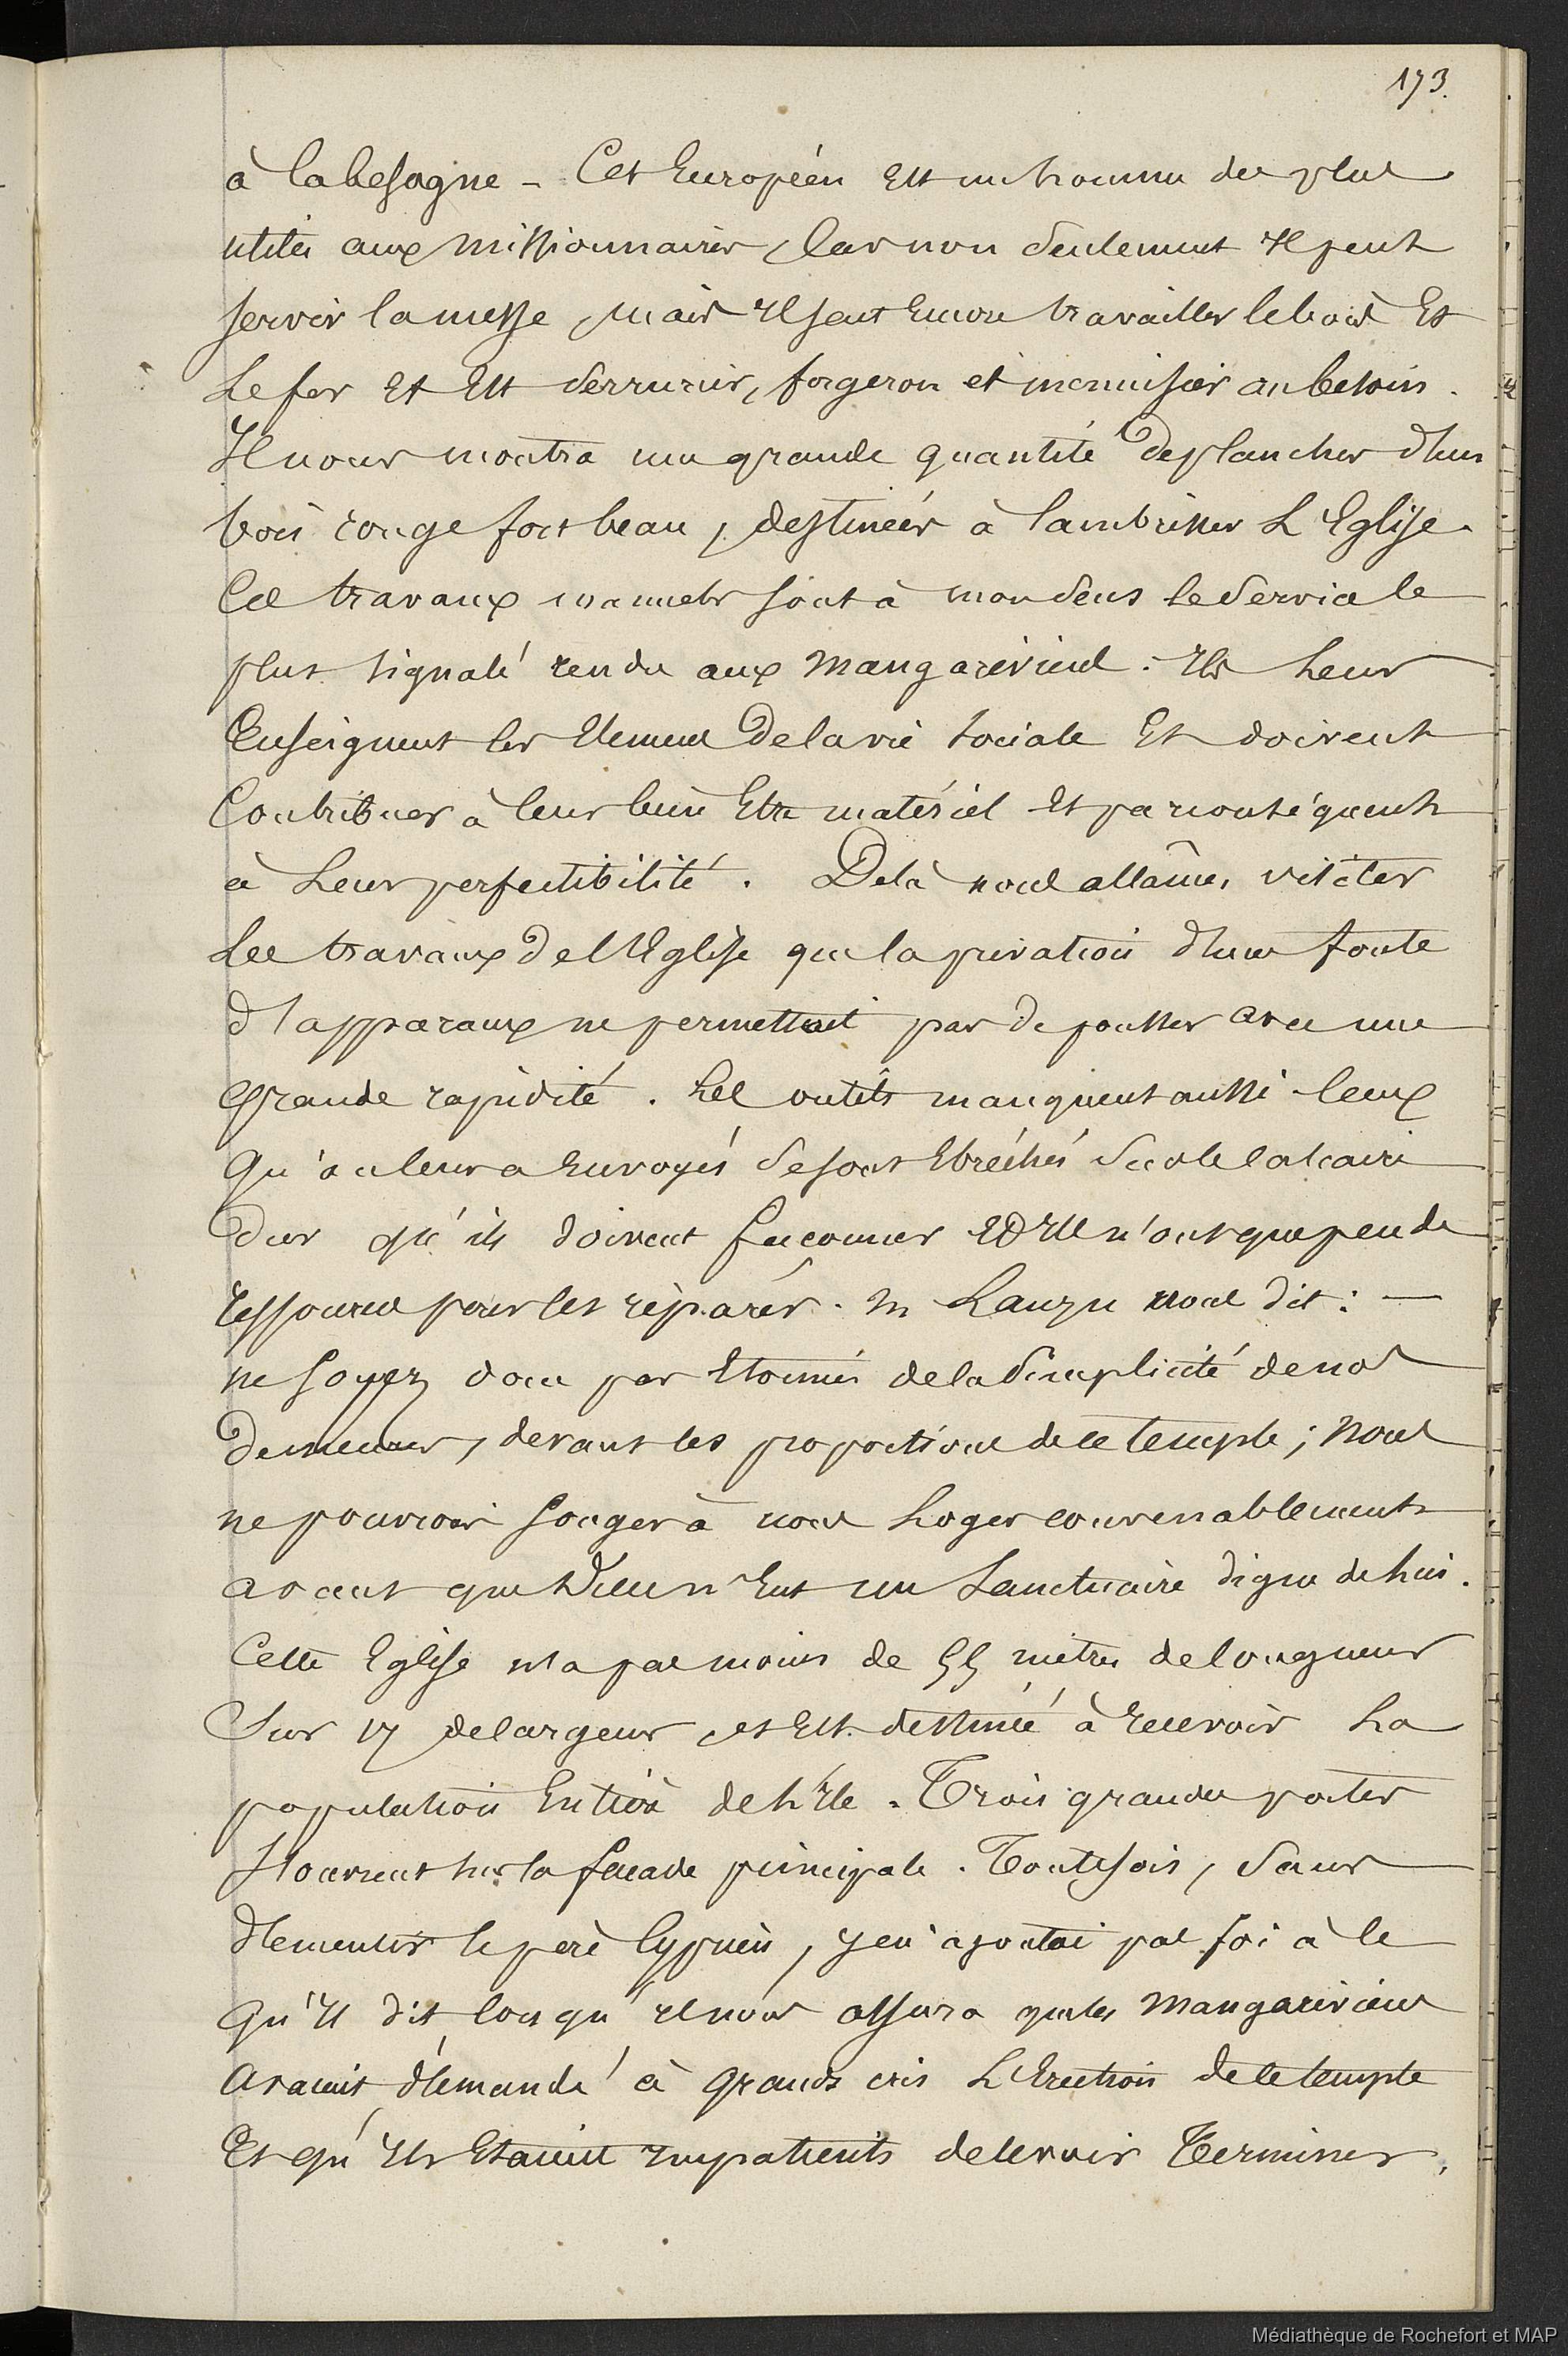 173.
à la besogne - Cet Européen est un homme des plus
utiles aux missionnaires, car non seulement Il peut
servir la messe, mais Il sait encore travailler le bois Et
Le fer Et Est serrurier, forgeron et menuisier au besoin.
Il nous montra une grande quantité de planches d'un
bois rouge fort beau, destinées à lambrisser L'Eglise.
Ces travaux manuels sont à mon sens le service le
plus signalé rendu aux Mangaréviens. Ils Leur
Enseignent les Elemens de la vie sociale Et doivent
Contribuer à leur bien Etre matériel Et par conséquent
à Leur perfectibilité. De là nous allâmes visiter
Les travaux de l'Eglise que la privation d'une foule
d'apparaux ne permettait pas de pousser avec une
grande rapidité. Les outils manquent aussi. Ceux
qu'on leur a Envoyés se sont Ebréchés sur le calcaire
dur qu'ils doivent façonner Et Ils n'ont que peu de
ressources pour les réparer. M Lauzu nous dit : —
ne soyez donc pas Etonnés de la simplicité de nos
demeures, devant les proportions de ce temple ; nous
ne pouvions songer à nous Loger convenablement
avant que Dieu n'Eut un Sanctuaire digne de Lui.
Cette Eglise n'a pas moins de 55 mètres de longueur
Sur 17 de largeur, et Est destinée à recevoir La
population Entière de L'Ile. Trois grandes portes
s'ouvrent sur la façade principale. Toutefois, sans
démentir le père Cyprien, je n'ajoutai pas foi à ce
qu'Il dit lorsqu'Il nous assura que les Mangaréviens
Avaient démandé à grands cris L'Erection de ce temple
Et qu'Ils Etaient Impatients de le voir Terminer.
Médiathèque de Rochefort et MAP